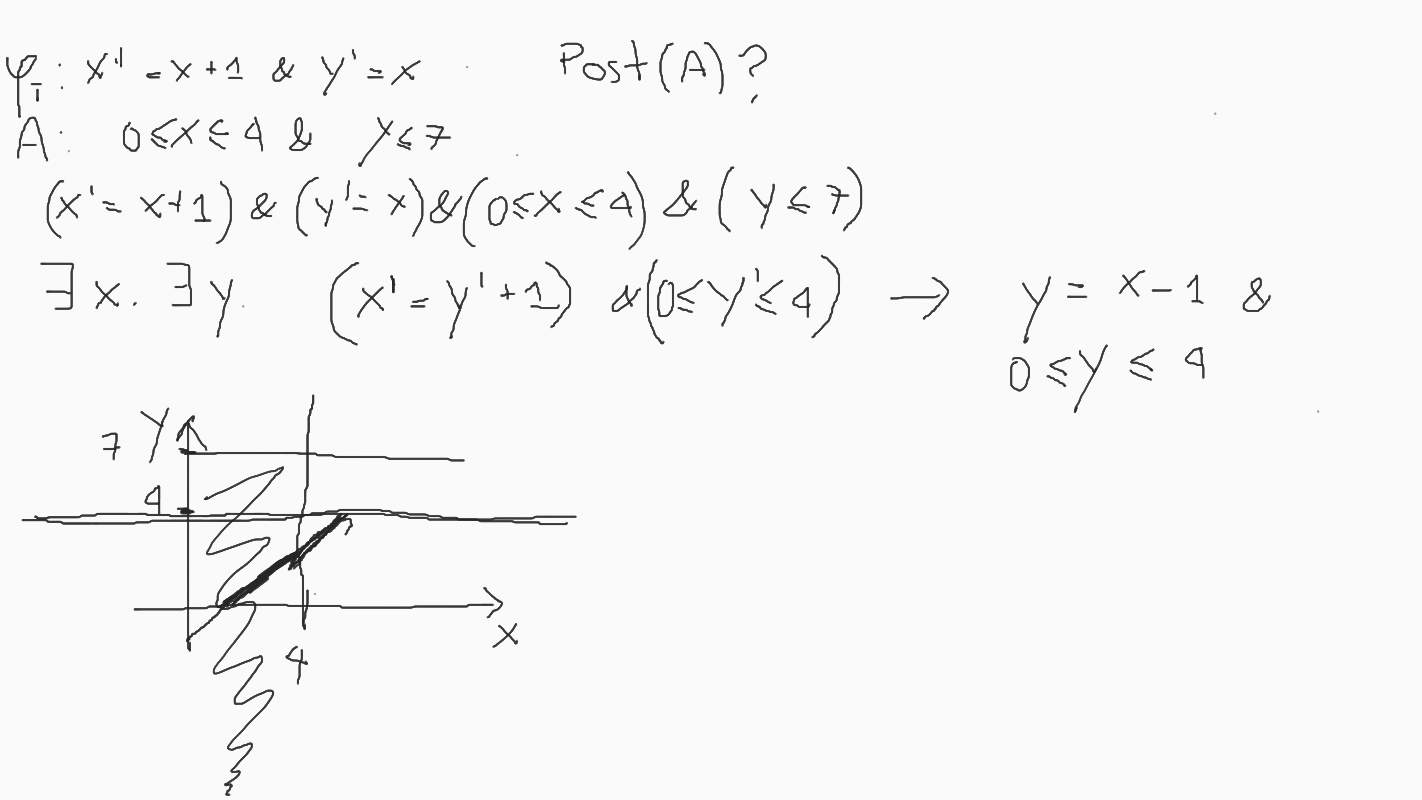 φ_T: x' = x + 1 & y' = x Post(A)?
A: 0 ≤ x ≤ 4 & y ≤ 7
(x' = x+1) & (y' = x) & (0 ≤ x ≤ 4) & (y ≤ 7)
∃ x. ∃ y (x' = y' + 1) & (0 ≤ y' ≤ 4) → y = x - 1 &
0 ≤ y ≤ 4
7 y
4
x
4